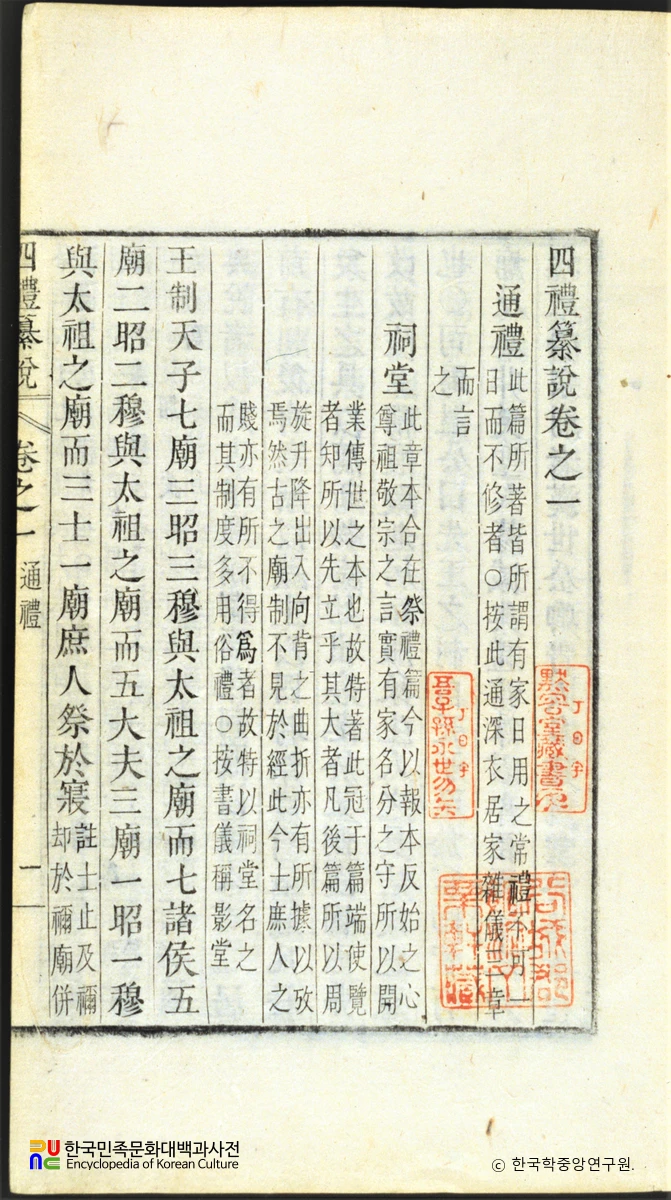 四禮纂說卷之一
通禮
此篇所著皆所謂有家日用之常禮不可一
日而不修者○按此通深衣居家雜儀三章
而言
之
祠堂
此章本合在祭禮篇今以報本反始之心
尊祖敬宗之言實有家名分之守所以開
業傳世之本也故特著此冠于篇端使覽
者知所以先立乎其大者凡後篇所以周
旋升降出入向背之曲折亦有所據以攷
焉然古之廟制不見於經此今士庶人之
賤亦有所不得爲者故特以祠堂名之
而其制度多用俗禮○按書儀稱影堂
王制天子七廟三昭三穆與太祖之廟而七諸侯五
廟二昭二穆與太祖之廟而五大夫三廟一昭一穆
與太祖之廟而三士一廟庶人祭於寢
註士止及禰
却於禰廟併
四禮纂說 卷之一 通禮 一
한국민족문화대백과사전
Encyclopedia of Korean Culture
© 한국학중앙연구원.